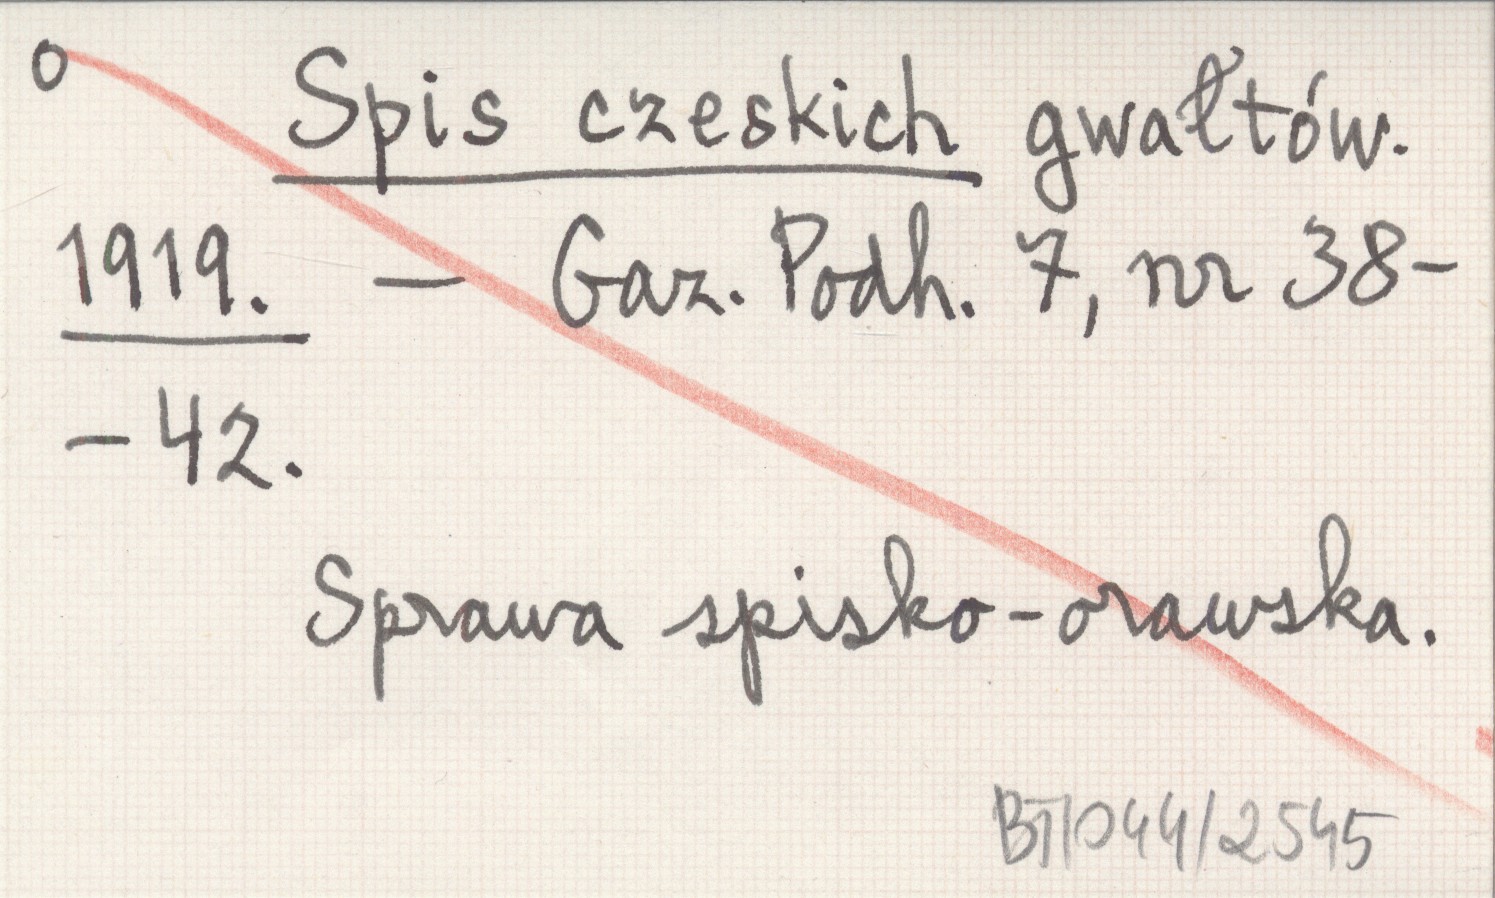 o Spis czeskich gwałtów.
1919. — Gaz. Podh. 7, nr 38-
-42.
Sprawa spisko-orawska.
BT/044/2545